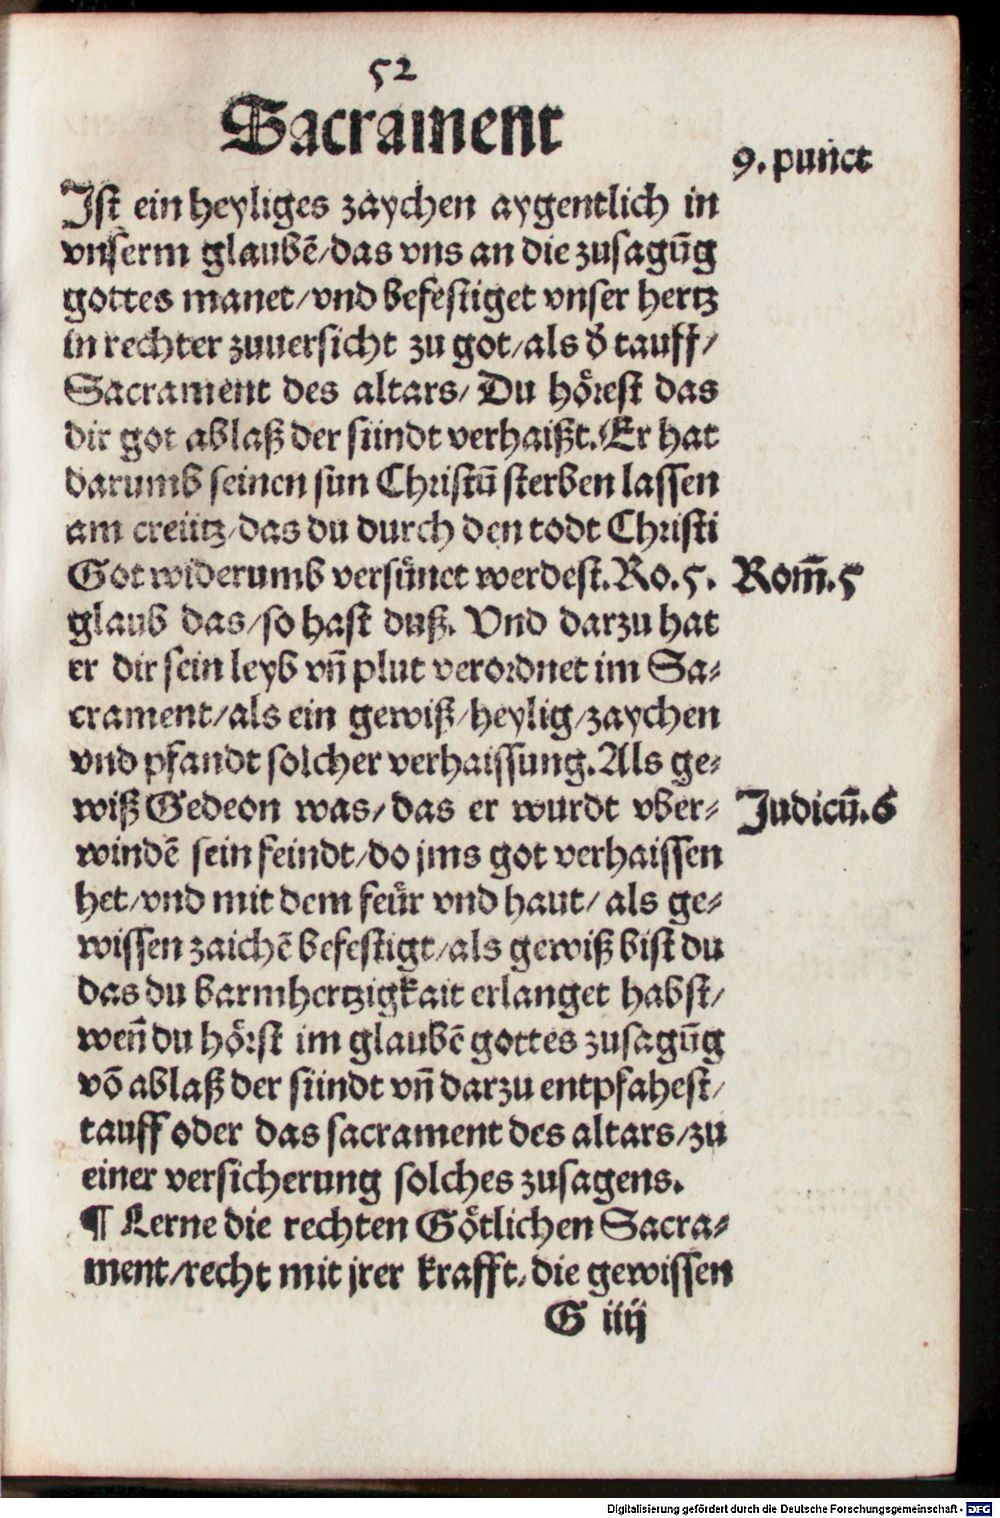 52
Sacrament
9. punct
Ist ein heyliges zaychen aygentlich in
vnserm glaubē/das vns an die zusagūg
gottes manet/vnd befestiget vnser hertz
in rechter zuuersicht zu got/als d̕ tauff/
Sacrament des altars/ Du hoͤrest das
dir got ablaß der sündt verhaißt.Er hat
darumb seinen sun Christū sterben lassen
am creütz/das du durch den todt Christi
Got widerumb versuͤnet werdest.Ro.5.
Rom̄.5
glaub das/so hast duß. Vnd darzu hat
er dir sein leyb vn̄ plut verordnet im Sa⸗
crament/als ein gewiß/heylig/zaychen
vnd pfandt solcher verhaissung.Als ge⸗
wiß Gedeon was/das er wurdt vber⸗
Judicū.6
windē sein feindt/do jms got verhaissen
het/vnd mit dem feuͤr vnd haut/ als ge⸗
wissen zaichē befestigt/als gewiß bist du
das du barmhertzigkait erlanget habst/
wen̄ du hoͤrst im glaubē gottes zusagūg
vō ablaß der sündt vn̄ darzu entpfahest/
tauff oder das sacrament des altars/zu
einer versicherung solches zusagens.
¶ Lerne die rechten Goͤtlichen Sacra⸗
ment/recht mit jrer krafft/die gewissen
G iiij
Digitalisierung gefördert durch die Deutsche Forschungsgemeinschaft - DFG